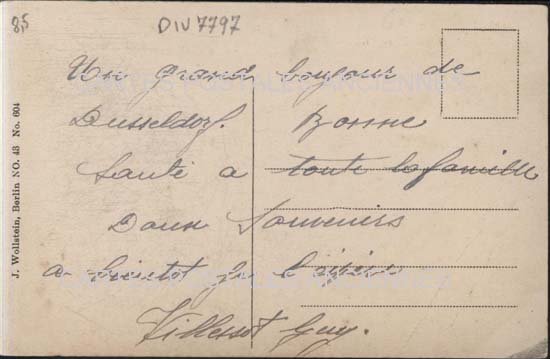 85
DIV7797
Un grand bonjour de
Dusseldorf. Bonne
Santé a toute la famille
Doux Souvenirs
a bientot
Guy.
J. Wollstein, Berlin NO. 43 No. 604